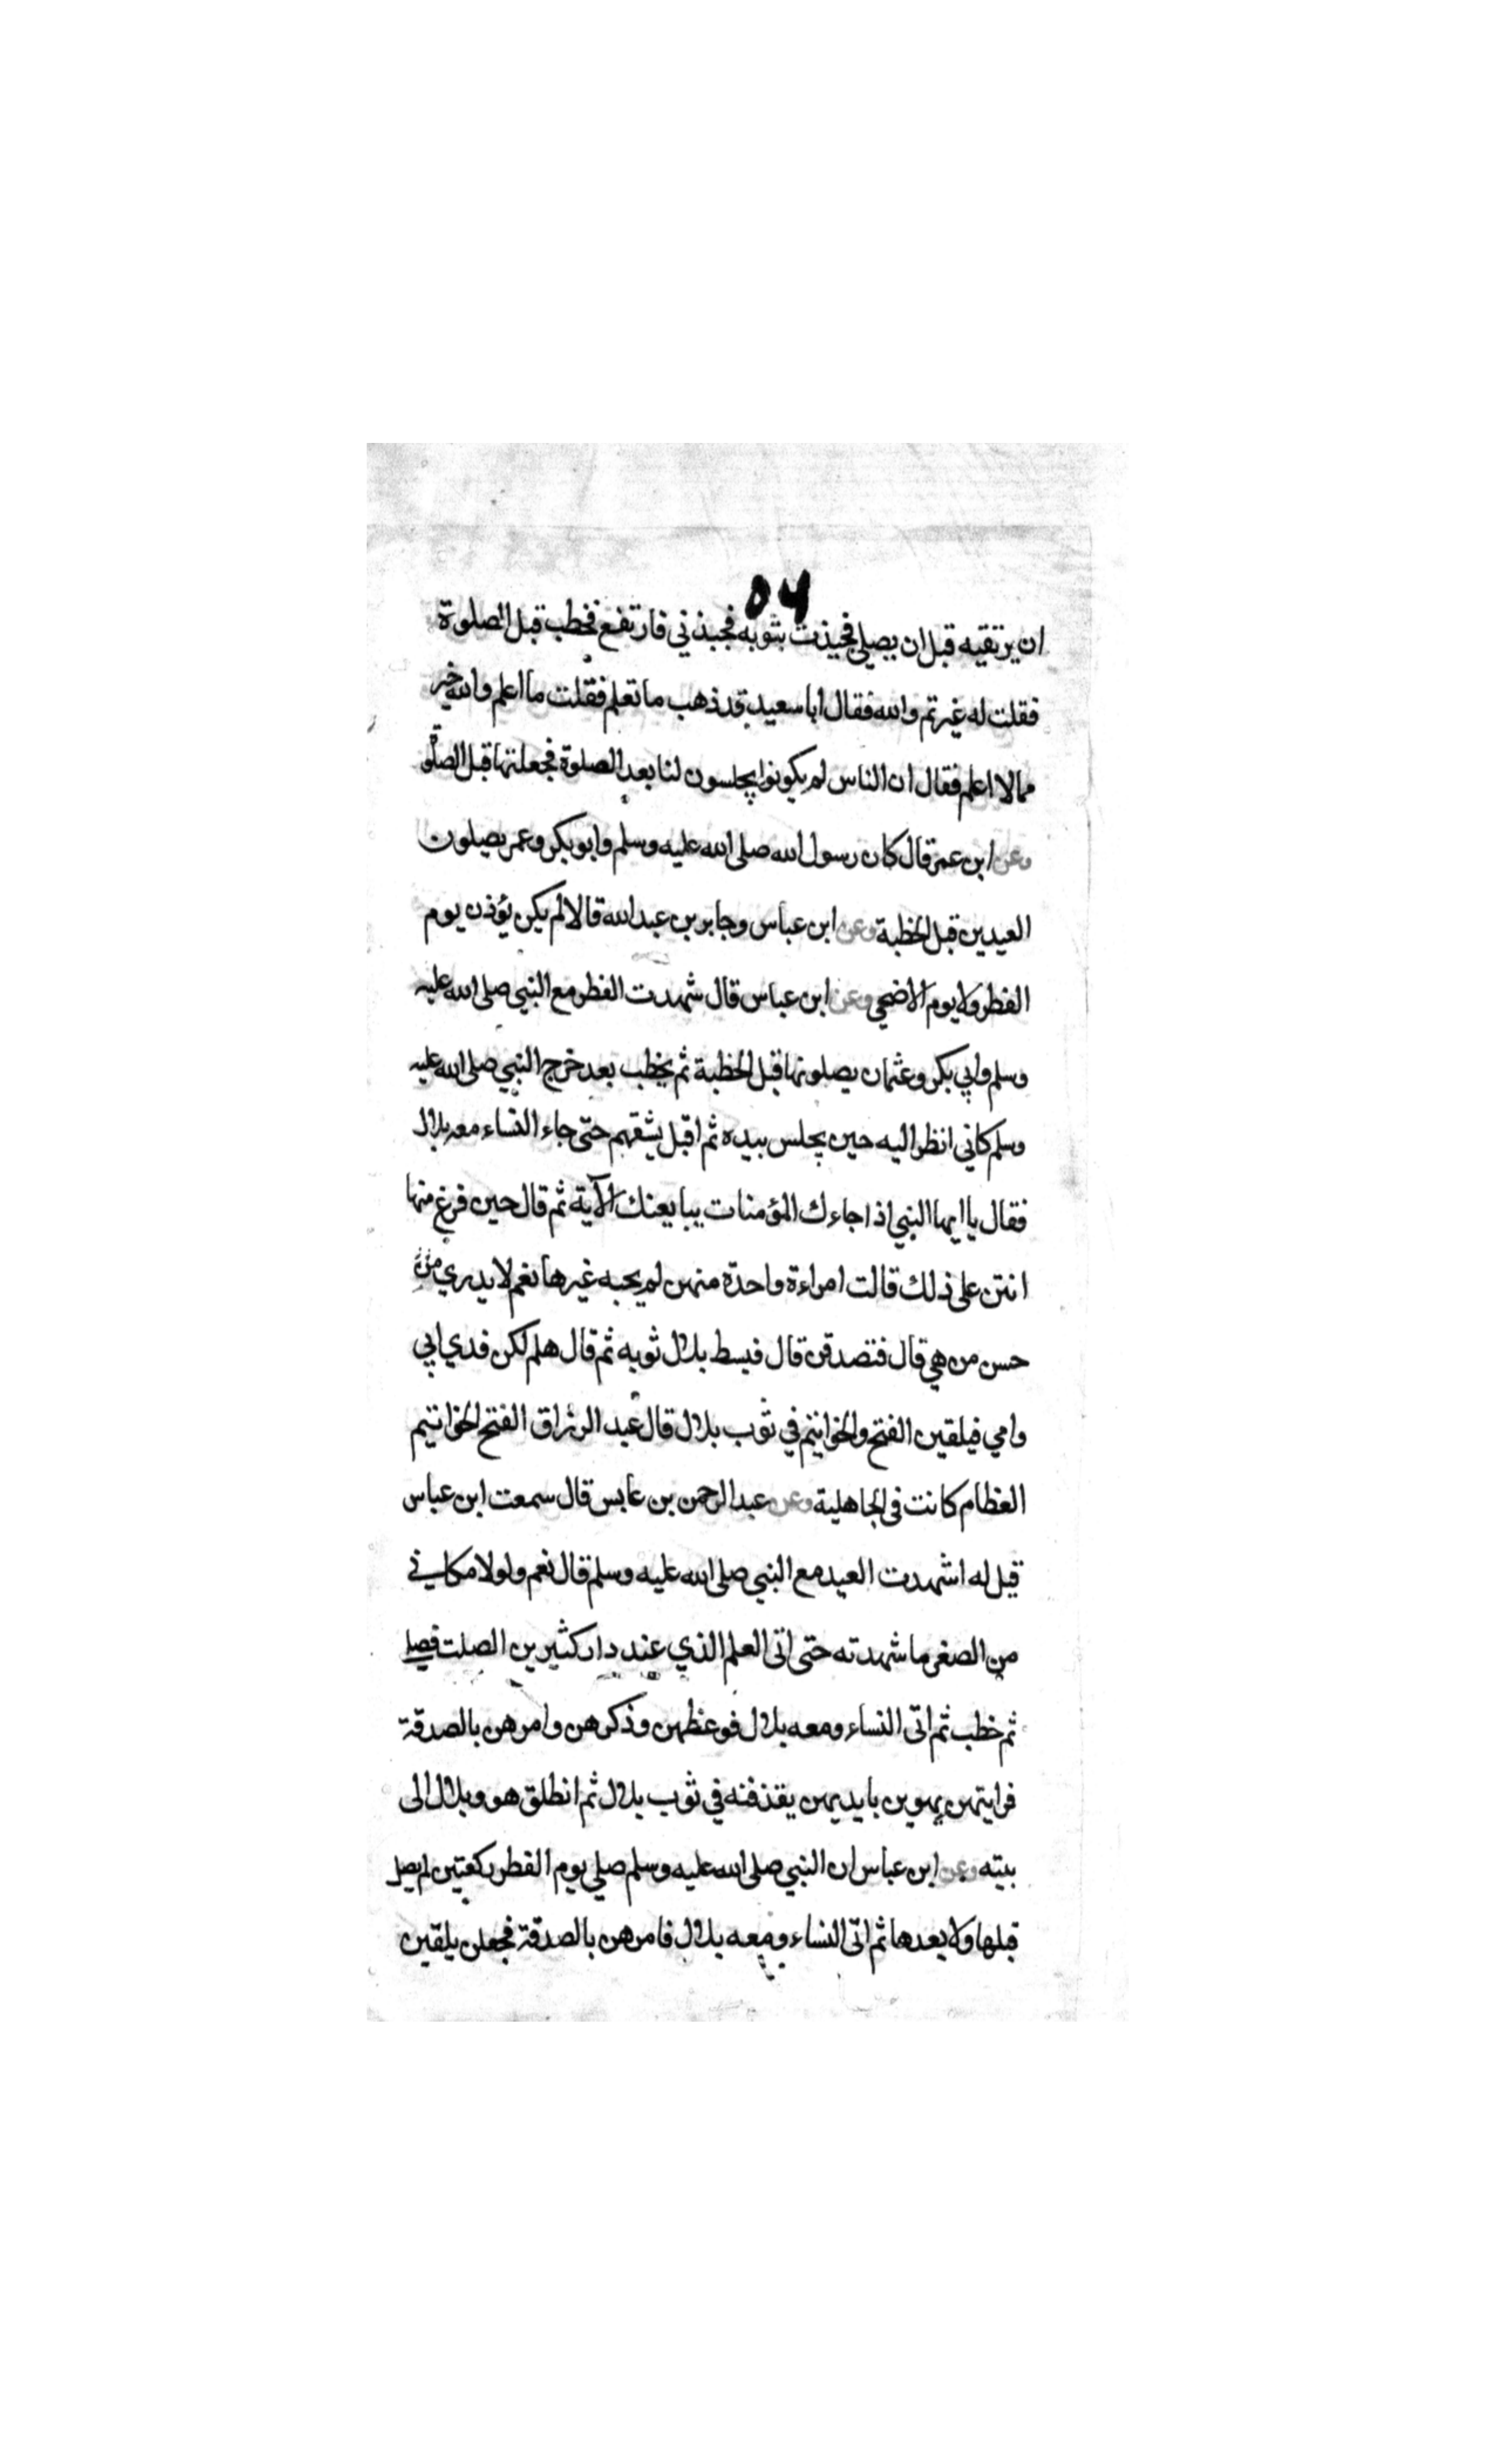 ٥٤
ان يرتقيه قبل ان يصلي فجبذت بثوبه فجبذني فارتفع فخطب قبل الصلوة
فقلت له غيرتم والله فقال ابا سعيد قد ذهب ما تعلم فقلت ما اعلم والله خير
مما لا اعلم فقال ان الناس لم يكونوا يجلسون لنا بعد الصلوة فجعلتها قبل الصلوة
وعن ابن عمر قال كان رسول الله صلى الله عليه وسلم وابو بكر وعمر يصلون
العيدين قبل الخطبة وعن ابن عباس وجابر بن عبد الله قالا لم يكن يؤذن يوم
الفطر ولا يوم الاضحى وعن ابن عباس قال شهدت الفطر مع النبي صلى الله عليه
وسلم وابي بكر وعثمان يصلونها قبل الخطبة ثم يخطب بعد خرج النبي صلى الله عليه
وسلم كاني انظر اليه حين يجلس بيده ثم اقبل يشقهم حتى جاء النساء معه بلال
فقال يا ايها النبي اذا جاءك المؤمنات يبايعنك الآية ثم قال حين فرغ منها
انتن على ذلك قالت امراءة واحدة منهن لم يجبه غيرها نعم لا يدري
حسن من هي قال فتصدقن قال فبسط بلال ثوبه ثم قال هلم لكن فدي ابي
وامي فيلقين الفتخ والخواتيم في ثوب بلال قال عبد الرزاق الفتخ الخواتيم
العظام كانت في الجاهلية وعن عبد الرحمن بن عابس قال سمعت ابن عباس
قيل له اشهدت العيد مع النبي صلى الله عليه وسلم قال نعم ولولا مكاني
من الصغر ما شهدته حتى اتى العلم الذي عند دار كثير بن الصلت فصلى
ثم خطب ثم اتى النساء ومعه بلال فوعظهن وذكرهن وامرهن بالصدقة
فرايتهن يهوين بايديهن يقذفنه في ثوب بلال ثم انطلق هو وبلال الى
بيته وعن ابن عباس ان النبي صلى الله عليه وسلم صلي يوم الفطر ركعتين لم يصل
قبلها ولا بعدها ثم اتى النساء ومعه بلال فامرهن بالصدقة فجعلن يلقين